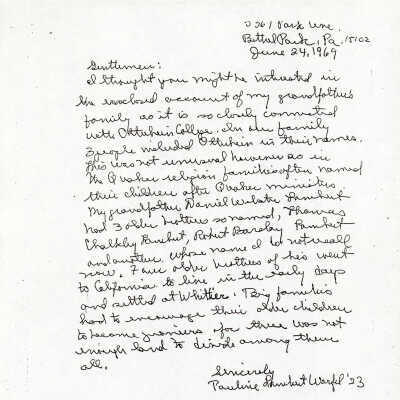 Park Ave.
Bethel Park, Pa. 15102
June 24, 1969
Gentlemen:
I thought you might be interested in
the enclosed account of my grandfather's
family as it is so closely connected
with Otterbein College. In our family
3 people included Otterbein in their names.
This was not unusual however as in
the Quaker religion families often named
their children after Quaker ministers
My grandfather Daniel Webster Lambert
had 3 older brothers so named, Thomas
Chalkley Lambert, Robert Barclay Lambert
and another whose name I do not recall
now. Four older brothers of his went
to California to live in the early days
and settled at Whittier. Big families
had to encourage their older children
to become pioneers for there was not
enough land to divide among them
all.
Sincerely
Pauline Lambert Warfel '23